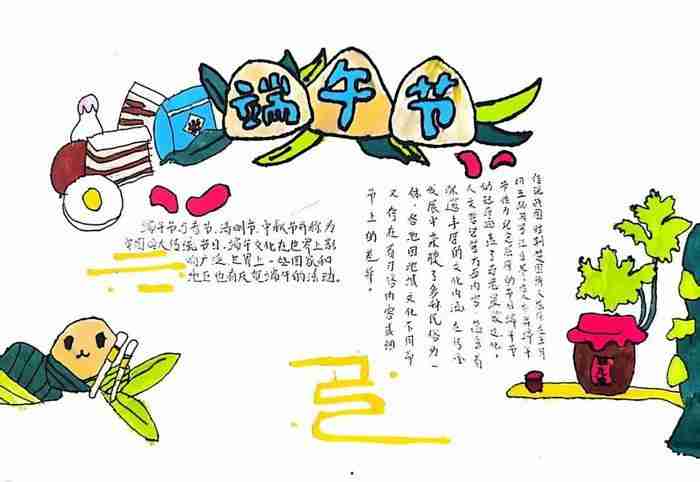 端午节
端午节与春节、清明节、中秋节并称为
中国四大传统节日。端午文化在世界上影
响广泛,世界上一些国家和
地区也有庆贺端午的活动。
传说战国时期楚国诗人屈原在五月
初五跳汨罗江自尽,后人亦将端午
节作为纪念屈原的节日。端午节
的起源涵盖了古老星象文化、
人文哲学等方面内容,蕴含着
深邃丰厚的文化内涵,在传承
发展中杂糅了多种民俗为一
体,各地因地域文化不同而
又存在着习俗内容或细
节上的差异。